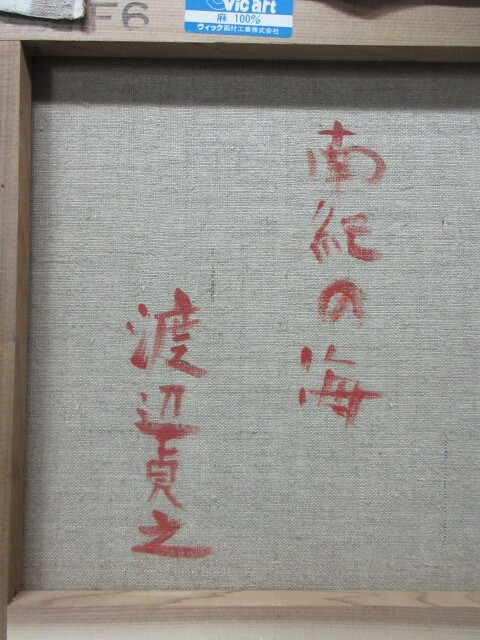 F6
Vicart
麻 100%
ヴィック画材工業株式会社
南紀の海
渡辺貞之